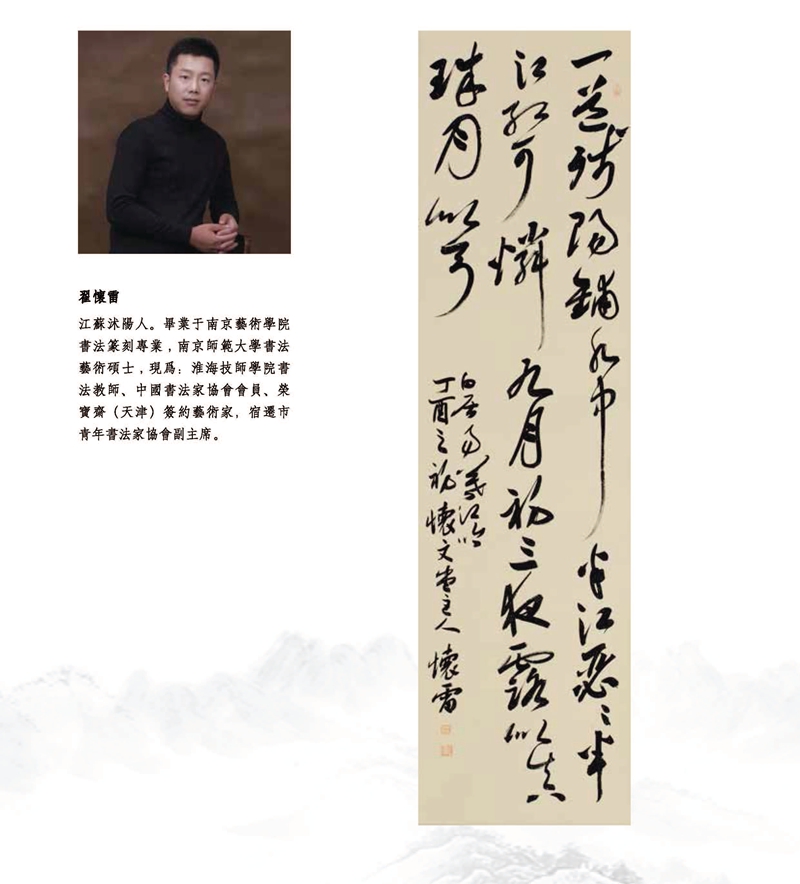 翟懷雷
江蘇沭陽人。畢業于南京藝術學院
書法篆刻專業，南京師範大學書法
藝術碩士，現爲：淮海技師學院書
法教師、中國書法家協會會員、榮
寶齋（天津）簽約藝術家，宿遷市
青年書法家協會副主席。
一道残陽鋪水中半江瑟〻半
江紅可憐九月初三夜露似真
珠月似弓
白居易暮江吟
丁酉之初懷文堂主人懷雷